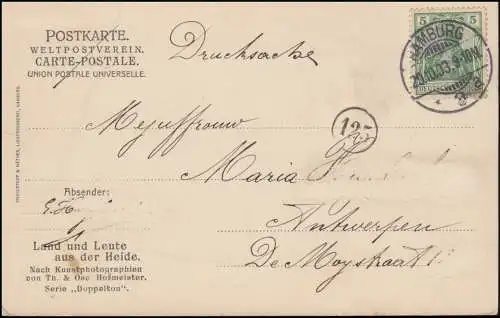 POSTKARTE.
WELTPOSTVEREIN.
CARTE-POSTALE.
UNION POSTALE UNIVERSELLE.
Drucksache
5 5
HAMBURG
20.10.03. 9-10N.
* 8 a
Mejuffrouw
12
Maria
Absender:
Antwerpen
De Moystraat
Land und Leute
aus der Heide.
Nach Kunstphotographien
von Th. & Osc Hofmeister.
Serie „Doppelton“.